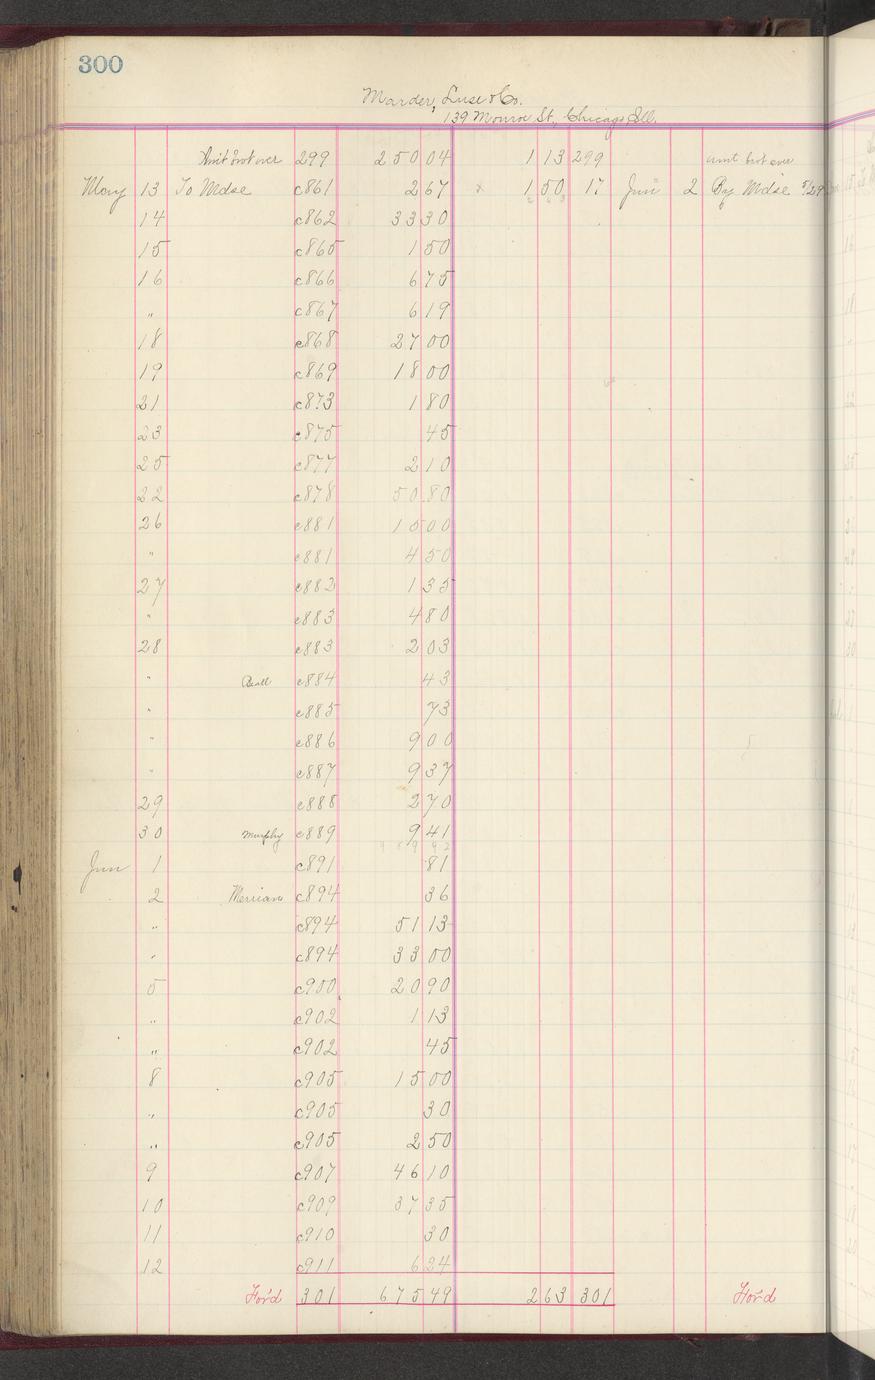 300
Marder, Luse & Co.
139 Monroe St., Chicago, Ill.
Am't brot over 299 250 04 1 13 299 amt brot over
May 13 To Mdse c861 2 67 x 1 50 17 Jun 2 By Mdse 5/29
14 c862 33 30
15 c865 1 50
16 c866 6 75
" c867 6 19
18 c868 27 00
19 c869 18 00
21 c873 1 80
23 c875 45
25 c877 2 10
22 c878 50 80
26 c881 15 00
" c881 4 50
27 c882 1 35
" c883 4 80
28 c883 2 03
" c884 43
" c885 73
" c886 9 00
" c887 9 37
29 c888 2 70
30 Murphy c889 9 41
Jun 1 c891 81
2 Merriam c894 36
" c894 51 13
" c894 33 00
5 c900 20 90
" c902 1 13
" c902 45
8 c905 15 00
" c905 30
" c905 2 50
9 c907 46 10
10 c909 37 35
11 c910 30
12 c911 6 24
For'd 301 675 49 2 63 301 For'd